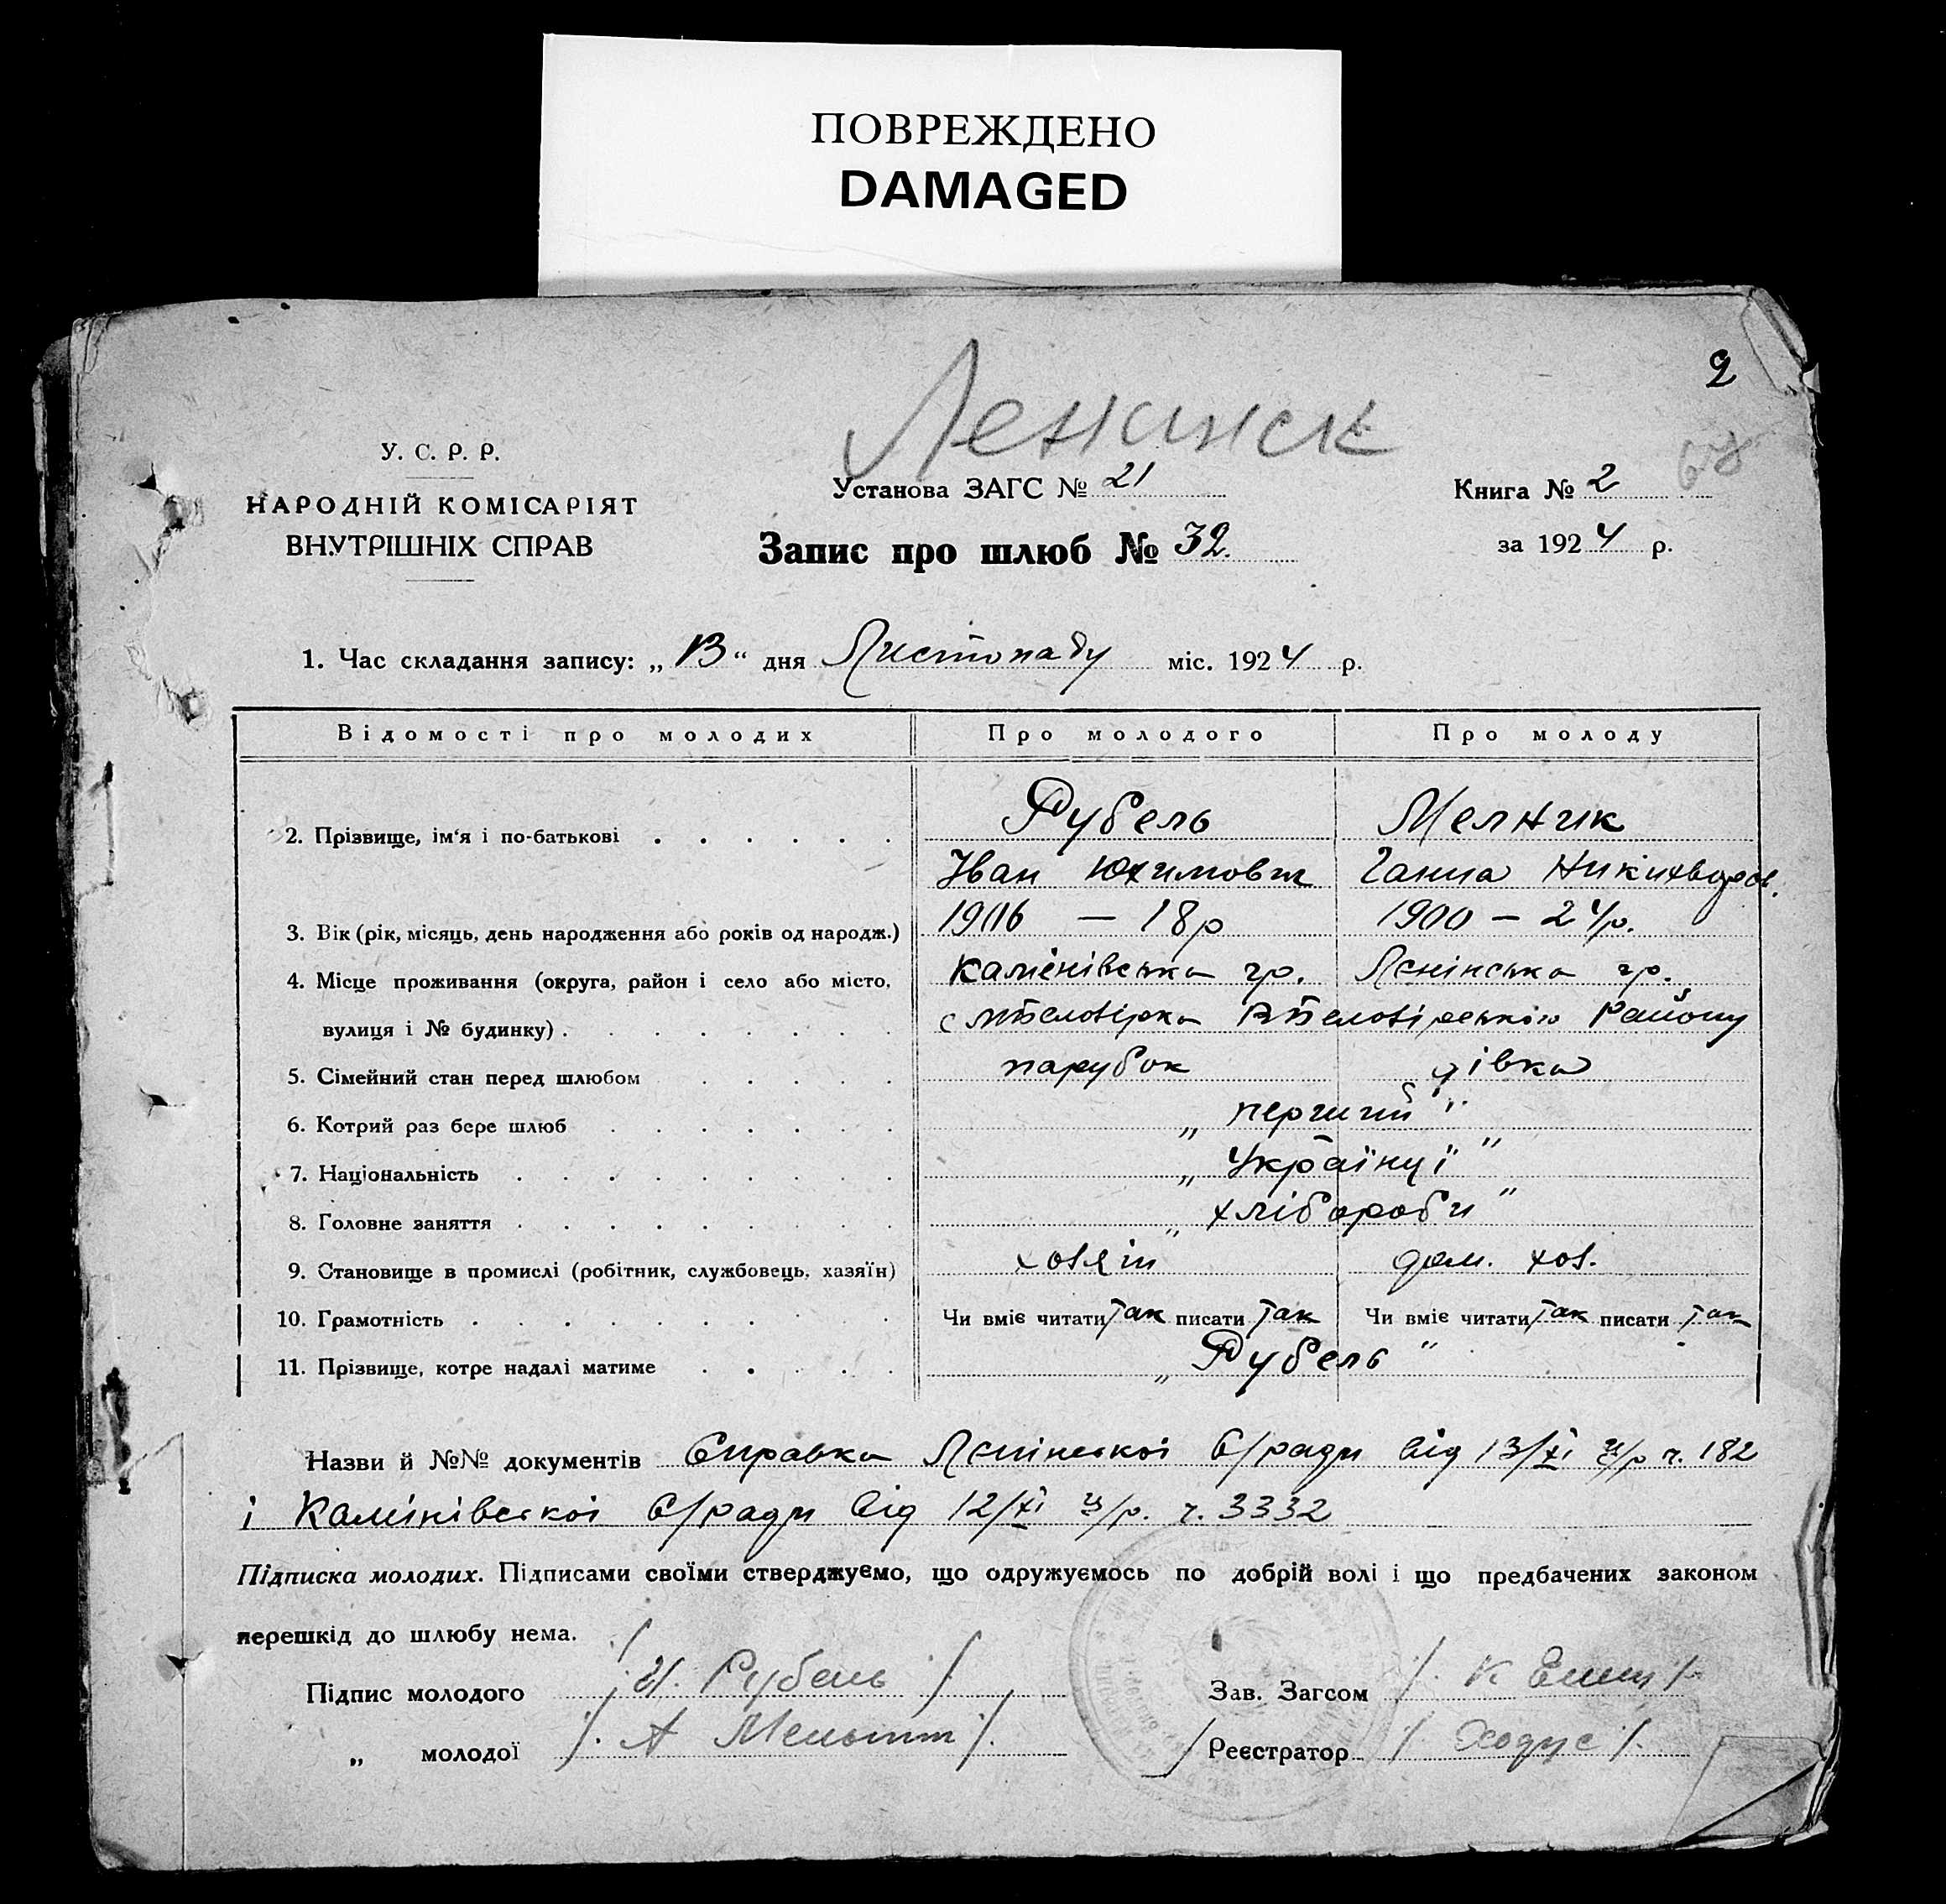 ПОВРЕЖДЕНО
DAMAGED
2
Ленинск
У. С. Р. Р.
НАРОДНІЙ КОМІСАРІЯТ
ВНУТРІШНІХ СПРАВ
Установа ЗАГС № 21
Книга № 2
Запис про шлюб № 32.
за 1924 р.
1. Час складання запису: „13“ дня Листопаду міс. 1924 р.
Відомості про молодих Про молодого Про молоду
2. Прізвище, ім'я і по-батькові Рубель Мелник
Іван Юхимович Ганна
3. Вік (рік, місяць, день народження або років од народж.) 1906 — 18р 1900 — 24р.
4. Місце проживання (округа, район і село або місто, Каменівська гр. Ленінська гр.
вулиця і № будинку) Району
5. Сімейний стан перед шлюбом парубок дівка
6. Котрий раз бере шлюб „ перший "
7. Національність „ Українці "
8. Головне заняття „ хлібороби "
9. Становище в промислі (робітник, службовець, хазяїн) хозяїн дом. хоз.
10. Грамотність Чи вміє читати так писати так Чи вміє читати так писати так
11. Прізвище, котре надалі матиме „ Рубель "
Назви й №№ документів Справка Ленінської С/ради від 13/XI ц/р ч. 182
і Камінівської С/ради від 12/XI ц/р. ч. 3332
Підписка молодих. Підписами своїми стверджуємо, що одружуємось по добрій волі і що предбачених законом
перешкід до шлюбу нема.
Підпис молодого /. И. Рубель /
Зав. Загсом /. К /.
„ молодої /. А /.
Реєстратор /. Ходус /.